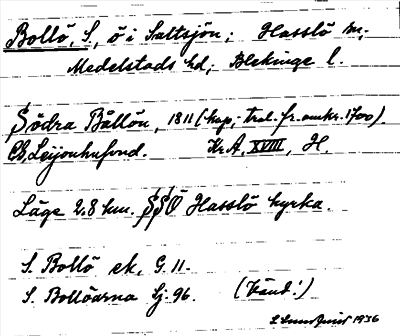 Bollö, S, ö i Saltsjön; Hasslö sn;
Medelstads hd; Blekinge l.
Södra Bållön, 1811 (kap; trol. fr. omkr. 1700).
CB, Leijonhufvud. Kr.A, XVIII, H.
Läge 2,8 km. SSÖ Hasslö kyrka.
S. Bollö ek, G. 11.
S. Bollöarna Gj. 96. (Vänd!)
1936